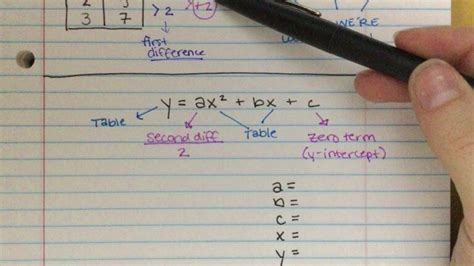 2
3 7 > 2 +2 WE'RE
first
difference
y = ax² + bx + c
Table second diff Table zero term
2 (y-intercept)
a =
b =
c =
x =
y =